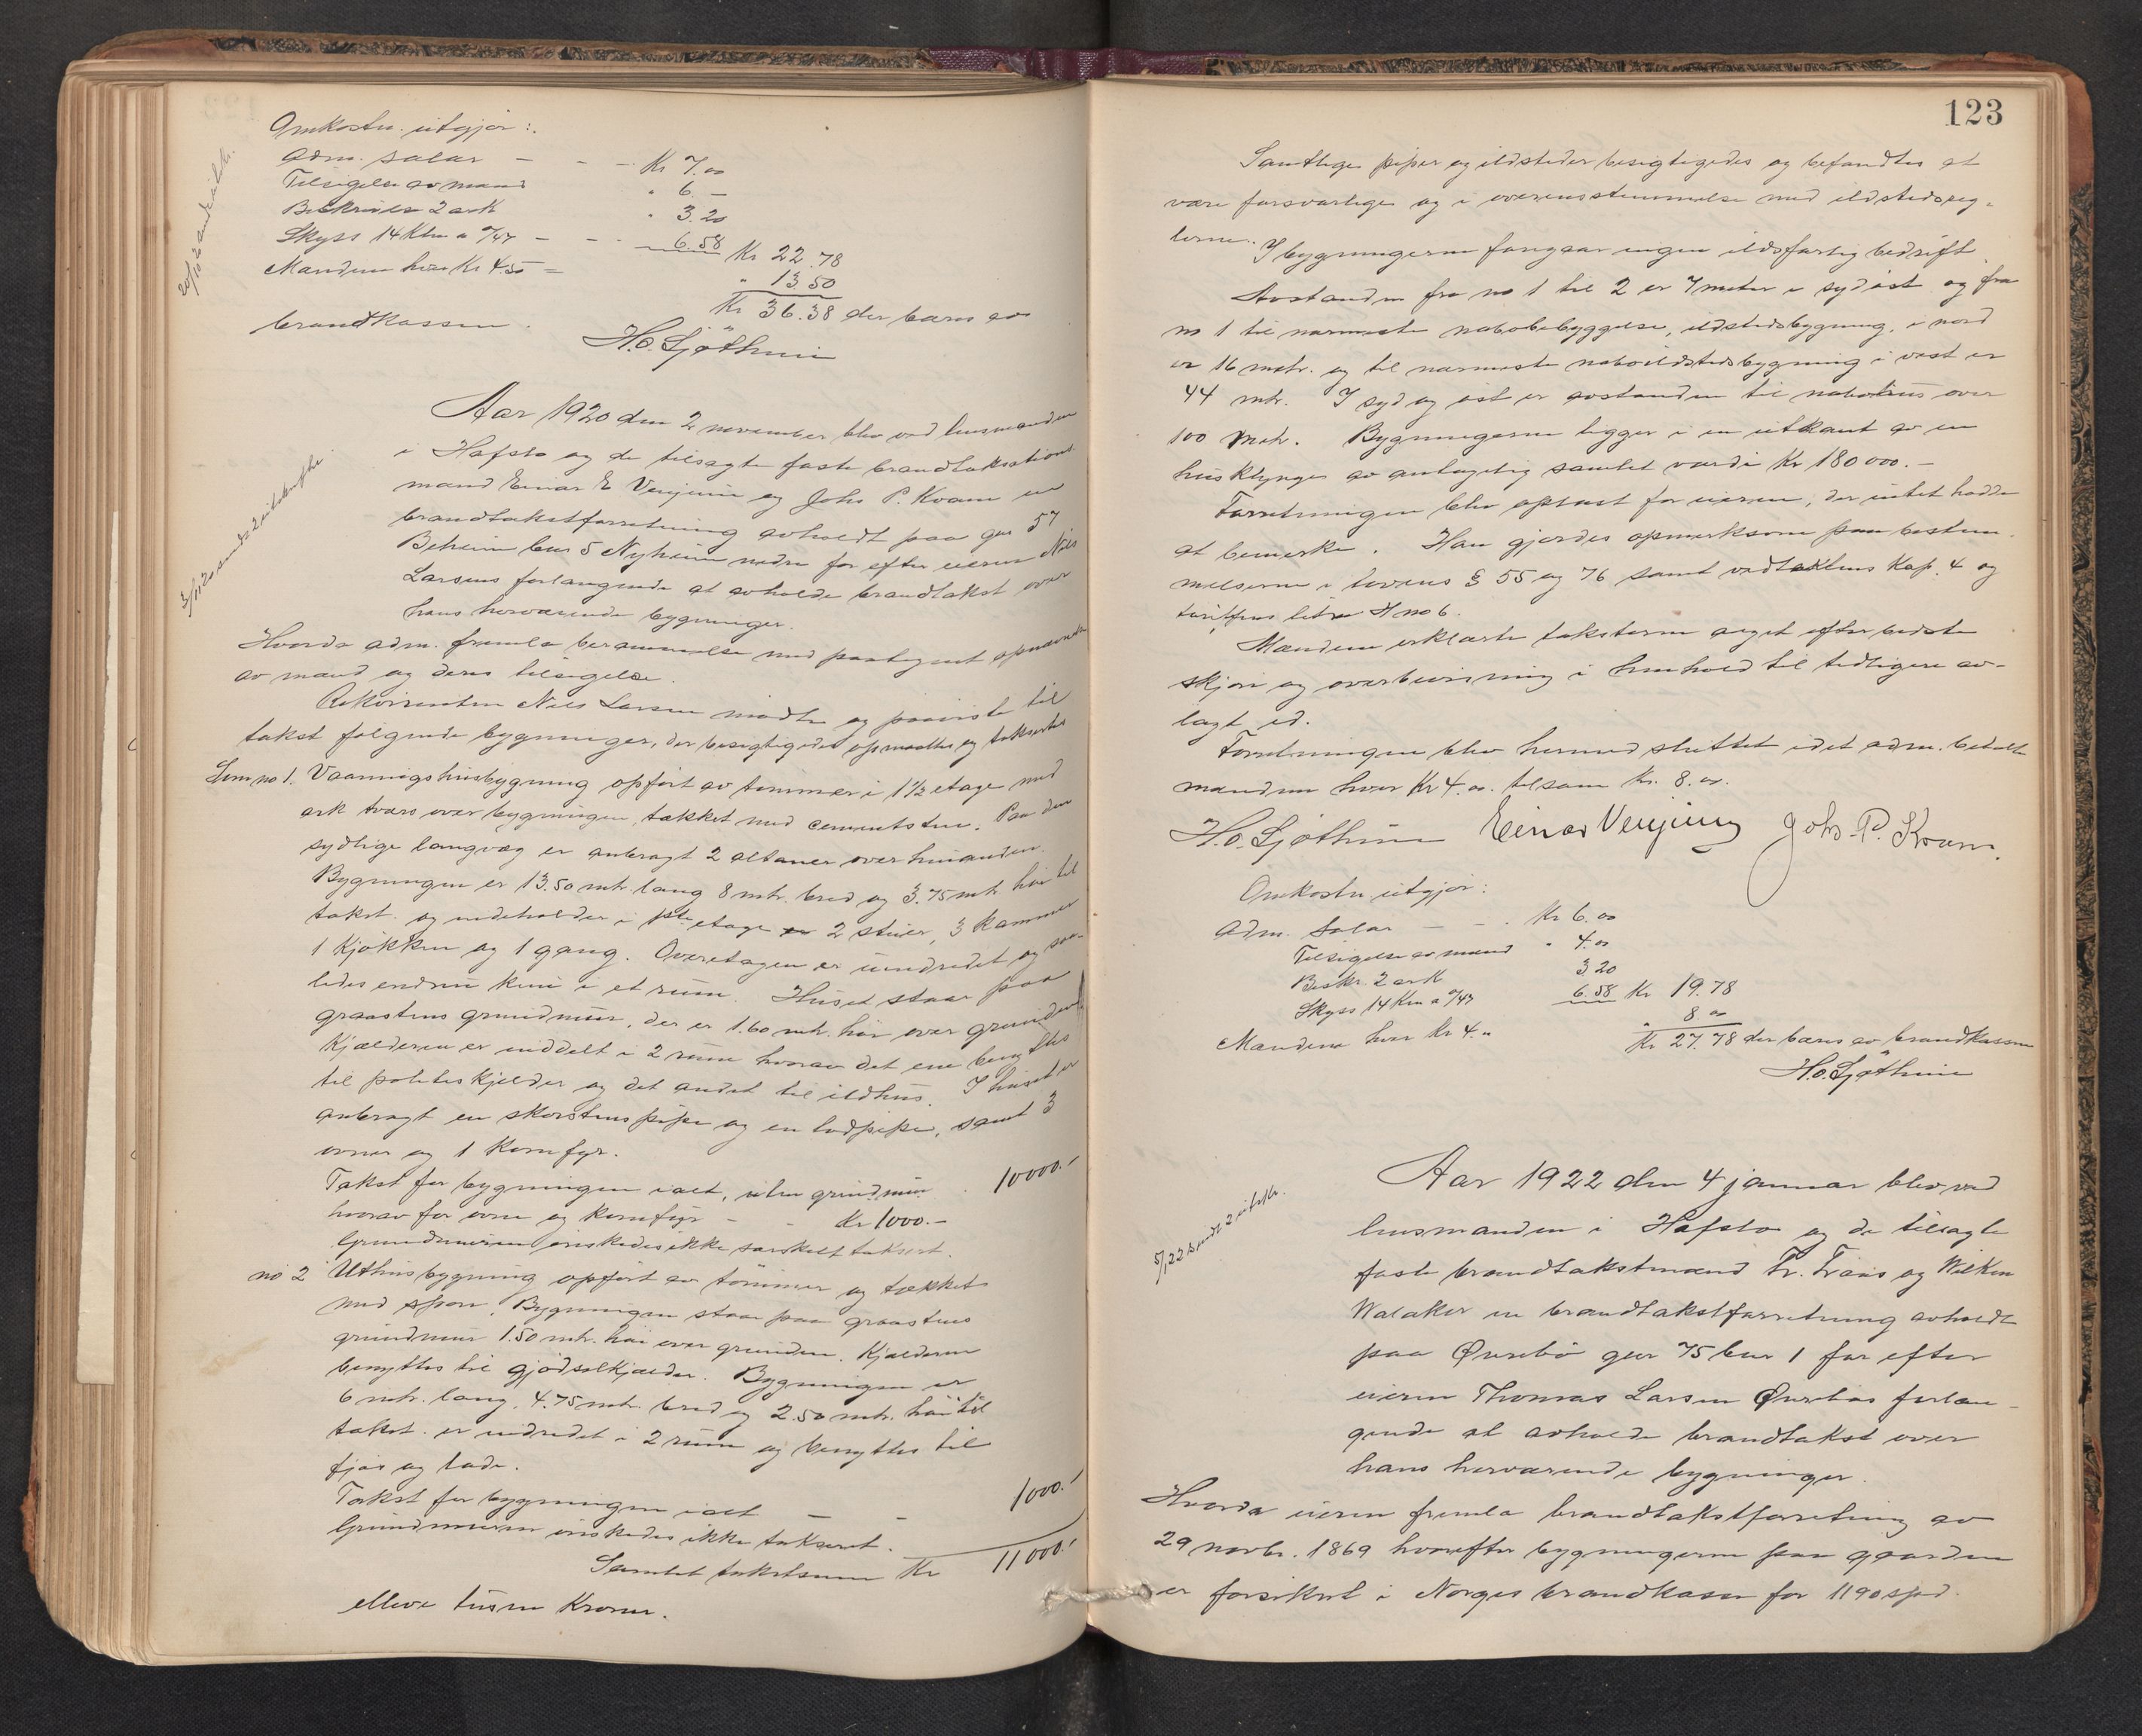 Omkostn. utgjør:
Adm. salar - - - Kr 7.00
Tilsigelse av mænd " 6.-
Beskrivelse 2 ark " 3.20
Skyss 14 Klm a 0/47 - - - 6.58 Kr 22.78
Mændene hver Kr 4.50 = " 13.50
Kr 36.38 der bæres av
brandkassen.
H.O. Sjøthun
20/10 20 sendt utskr.
Aar 1920 den 2 november blev ved lensmanden
i Hafslo og de tilsagte faste brandtakstions
mænd Einar E Venjum og Johs P. Kvam en
brandtakstforretning avholdt paa gnr 57
Beheim bnr 5 Nyheim nedre for efter eieren Nils
Larsens forlangende at avholde brandtakst over
hans herværende bygninger.
3/11 20 sendt 2 utskrifter
Hvorda adm. fremla berammelse med paategnet opnævnelse
av mænd og deres tilsigelse.
Rekvirenten Nils Larsen mødte og paaviste til
takst følgende bygninger, der besigtigedes opmaaltes og taksertes
Som no 1. Vaaningshusbygning opført av tømmer i 1½ etage med
ark tværs over bygningen, tækket med cementsten. Paa den
sydlige langvæg er anbragt 2 altaner over hinanden.
Bygningen er 13.50 mtr. lang 8 mtr. bred og 3.75 mtr høi til
takst. og indeholder i 1ste etage 2 stuer, 3 kammer
1 Kjøkken og 1 gang. Overetagen er uindredet og saa-
ledes endnu kun i et rum. Huset staar paa
graastens grundmur, der er 1.60 mtr. høi over grunden
Kjælderen er inddelt i 2 rum hvorav det ene benyttes
til poteteskjelder og det andet til ildhus. I huset er
anbragt en skorstenspipe og en ludpipe, samt 3
ovner og 1 Komfyr.
Takst for bygningen ialt, uten grundmur 10000.-
hvorav for ovne og komfyr - - Kr 1000.-
Grundmuren ønskedes ikke særskilt taksert.
no 2 Uthusbygning opført av tømmer og tækket
med spon. Bygningen staar paa graastens
grundmur 1.50 mtr. høi over grunden. Kjælderen
benyttes til gjødselkjælder. Bygningen er
6 mtr. lang, 4.75 mtr. bred og 2.50 mtr. høi til
takst. er indredet i 2 rum og benyttes til
fjøs og lade.
Takst for bygningen ialt - - 1000.-
Grundmuren ønskedes ikke taksert.
Samlet takstsum Kr 11000.-
elleve tusen Kroner.
123
Samtlige piper og ildsteder besigtigedes og befandtes at
være forsvarlige og i overensstemmelse med ildstedsreg-
lerne. I bygningerne foregaar ingen ildsfarlig bedrift.
Avstanden fra no 1 til 2 er 7 meter i sydøst og fra
no 1 til nærmeste nabobebyggelse, ildstedsbygning, i nord
er 16 metr. og til nærmeste naboildstedsbygning i vest er
44 mtr. I syd og øst er avstanden til nabohus over
100 metr. Bygningerne ligger i en utkant av en
husklynge av antagelig samlet værdi Kr 180000.-
Forretningen blev oplæst for eieren, der intet hadde
at bemerke. Han gjordes opmerksom paa bestem-
melserne i lovens § 55 og 76 samt vedtæktens Kap. 4 og
tariffens litra H no 6.
Mændene erklærte taksterne avgit efter bedste
skjøn og overbevisning i henhold til tidligere av-
lagt ed.
Forretningen blev hermed sluttet idet adm. betalte
mændene hver Kr 4.00. tilsam Kr. 8.00.
H.O. Sjøthun Einar Venjum Johs. P. Kvam.
Omkostn utgjør:
Adm. Salar - - - Kr 6.00
Tilsigelse av mænd " 4.00
Beskr. 2 ark 3.20
Skyss 14 Km a 0/47 6.58 Kr 19.78
Mændene hver Kr 4.00 " 8.00
Kr 27.78 der bæres av brandkassen
H.O. Sjøthun
Aar 1922 den 4 januar blev ved
lensmanden i Hafslo og de tilsagte
faste brandtakstmænd Fr. Træn og Wilken
Walaker en brandtakstforretning avholdt
paa Øvrebø gnr 75 bnr 1 for efter
eieren Thomas Larsen Øvrebøs forlan-
gende at avholde brandtakst over
hans herværende bygninger.
5/1 22 sendt 2 utskr.
Hvorda eieren fremla brandtakstforretning av
29 novbr. 1869 hvorefter bygningerne paa gaarden
er forsikret i Norges brandkasse for 1190 spd.